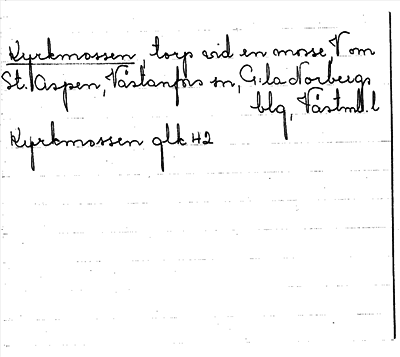 Kyrkmossen, torp vid en mosse V om
St. Aspen, Västanfors sn, G:la Norbergs
blg, Västml. l
Kyrkmossen glk 42